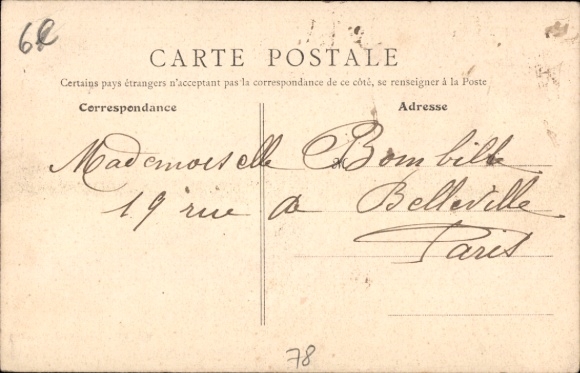 CARTE POSTALE
Certains pays étrangers n'acceptant pas la correspondance de ce côté, se renseigner à la Poste
Correspondance
Adresse
Mademoiselle
19 rue de Belleville
Paris
78